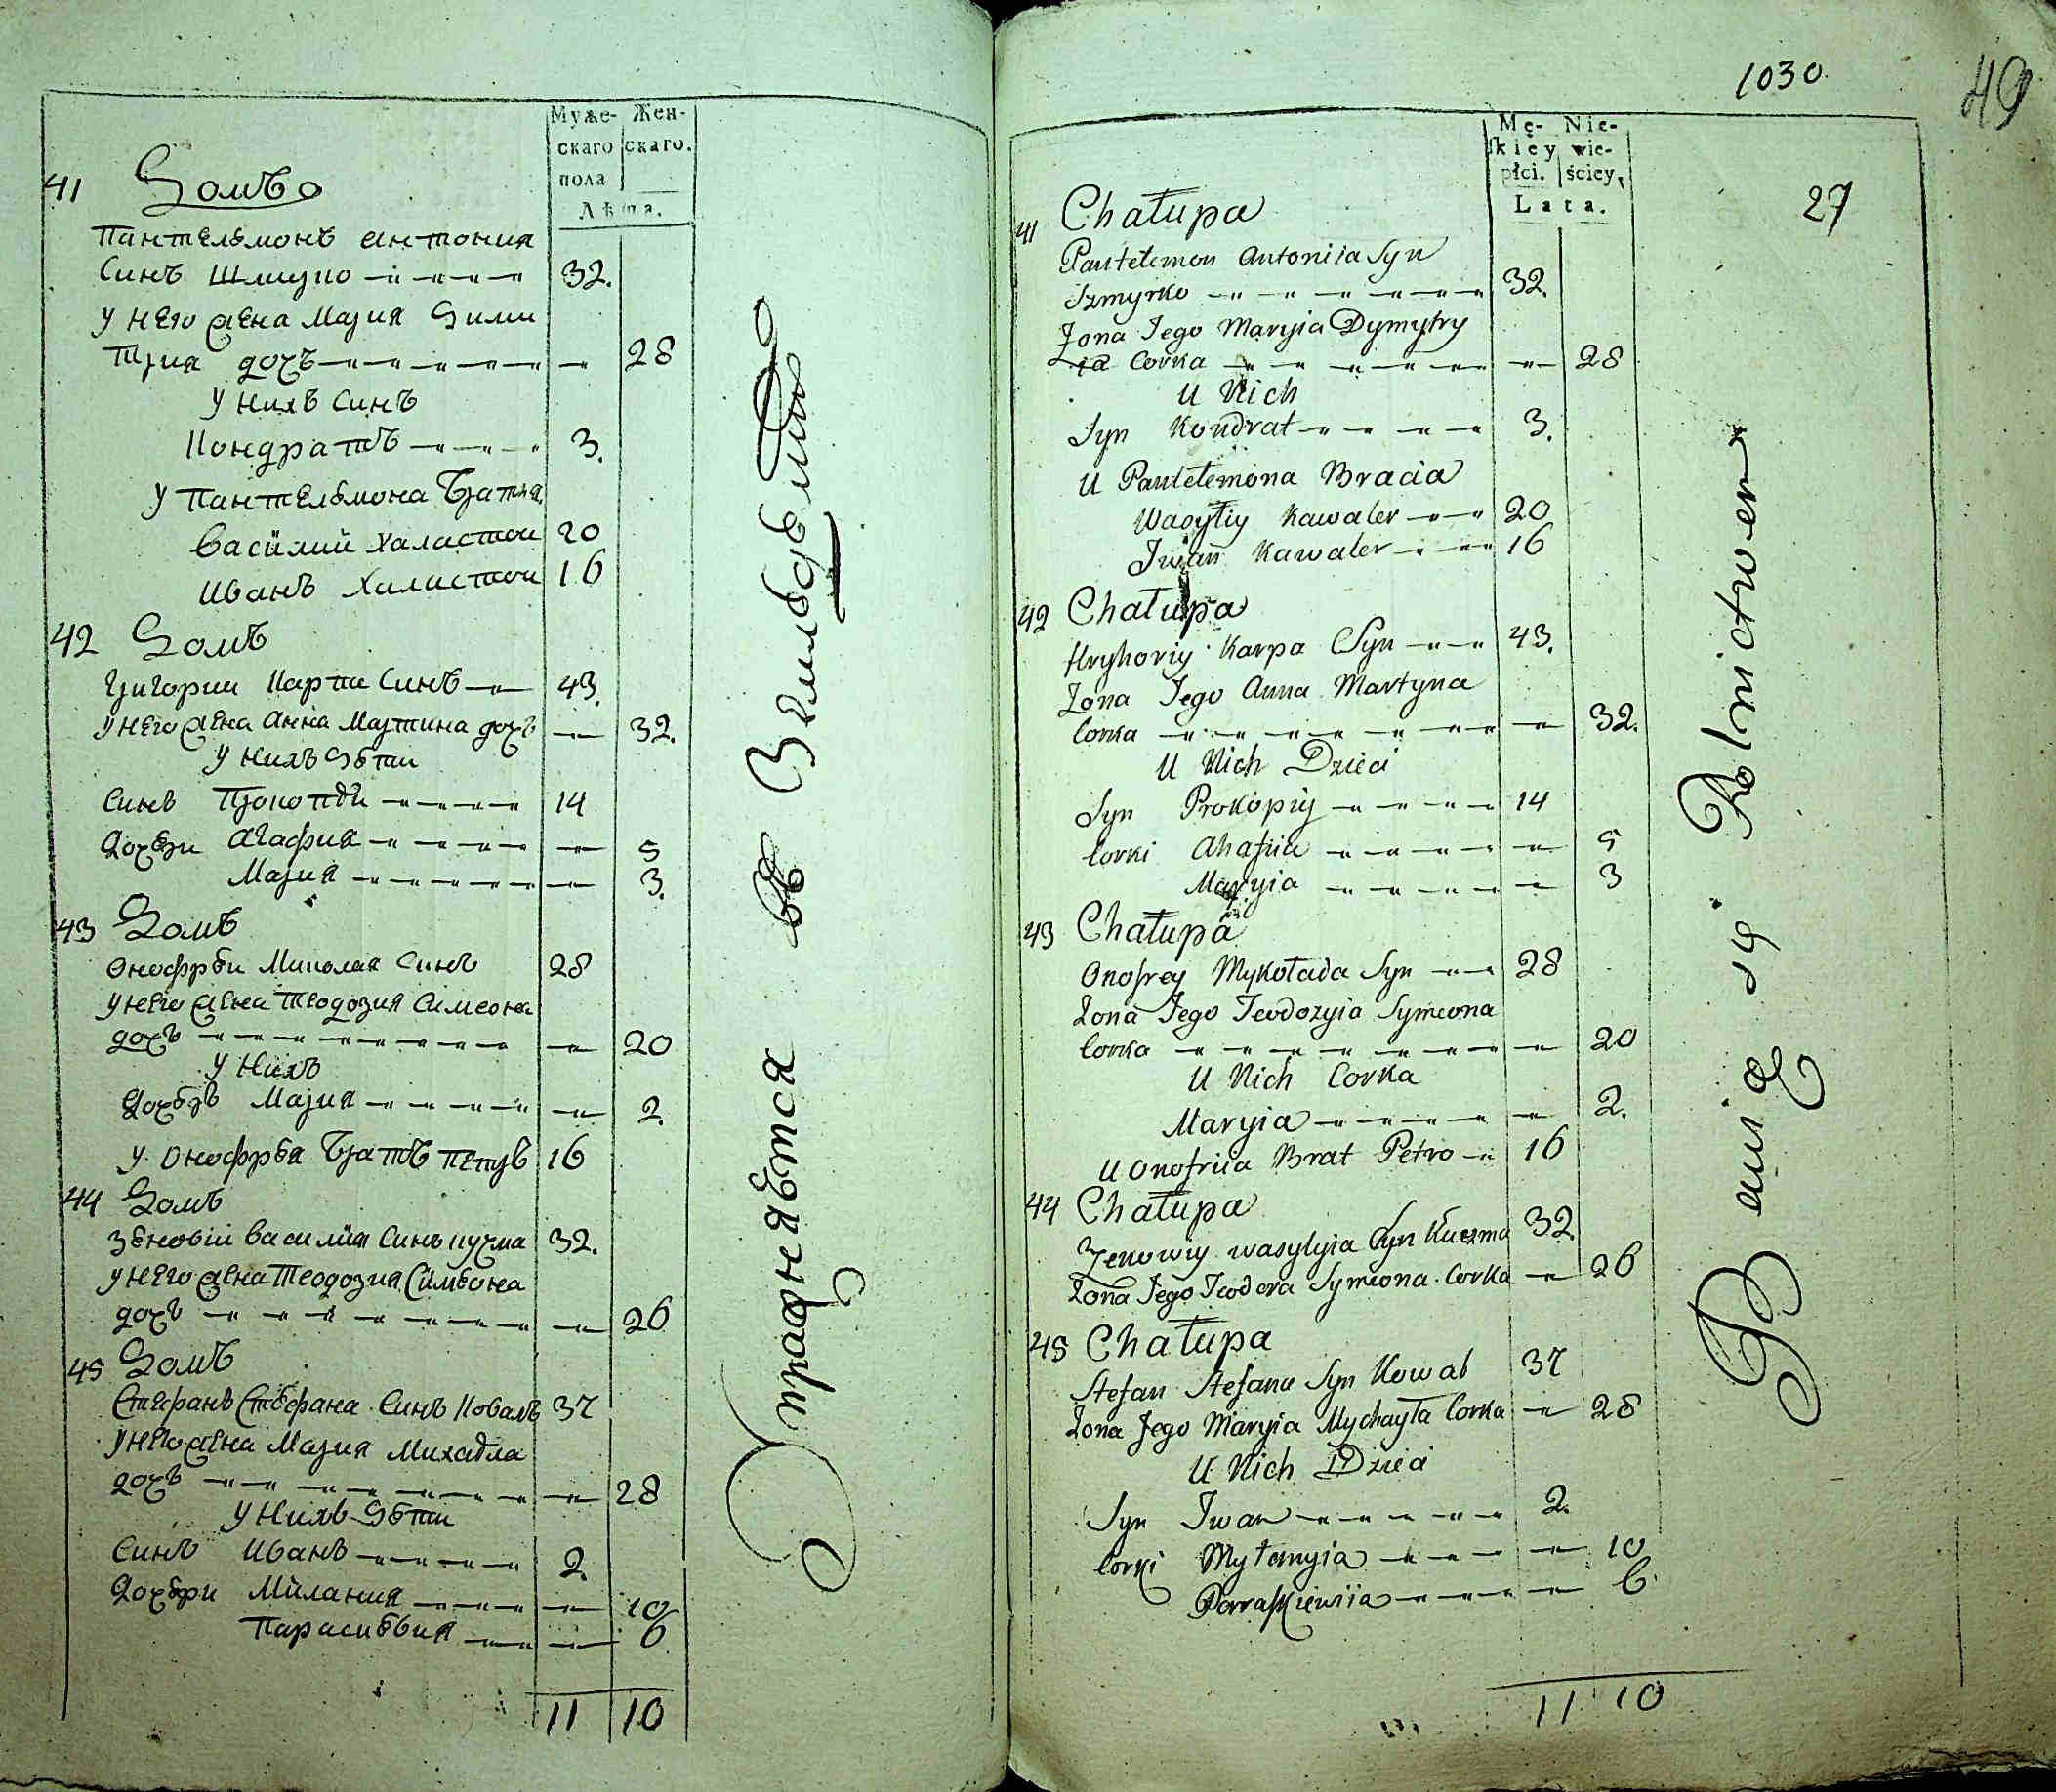 Муже- Жен-
скаго скаго.
пола
Лѣта.
41 Домъ
Пантелемонъ Антония
Синъ Шмирко 32.
У него жена Мария Дими
трия дохъ 28
У нихъ Синъ
Кондратъ 3.
У Пантелемона Братия
Василий Халастои 20
Иванъ Халастои 16
42 Домъ
Григории Карпи Синъ 43.
У него жена Анна Мартина дохъ 32.
У нихъ Дѣти
Синъ Прокопѣи 14
Дохѣри Агафия 5
Мария 3.
43 Домъ
Онофрѣи Миколая Синъ 28
У него жена Теодозия Симеона
дохъ 20
У нихъ
Дохѣръ Мария 2.
У Онофрѣя Братъ Петръ 16
44 Домъ
Зѣновіи Василия Синъ Кузма 32.
У него жена Теодозия Симѣона
дохъ 26
45 Домъ
Стефанъ Стефана Синъ Коваль 37
У него жена Мария Михаѣла
дохъ 28
У нихъ Дѣти
Синъ Иванъ 2.
Дохѣри Милания 10
Параскѣвия 6
11 10
Упражняются въ Земледелии
1030
49
Mę- Nie-
skiey wie-
płci. ściey,
Lata.
27
41 Chałupa
Pantełemon Antoniia Syn
Szmyrko 32.
Zona Jego Maryia Dymytry
ia Corka 28
U Nich
Syn Kondrat 3.
U Pantełemona Bracia
Wasyliy Kawaler 20
Jwan Kawaler 16
42 Chałupa
Hryhoriy Karpa Syn 43.
Zona Jego Anna Martyna
Corka 32.
U Nich Dzieci
Syn Prokopiy 14
Corki Ahafiia 5
Maryia 3
43 Chałupa
Onofrey Mykołaia Syn 28
Zona Jego Teodozyia Symeona
Corka 20
U Nich Corka
Maryia 2.
U Onofriia Brat Petro 16
44 Chałupa
Zenowiy Wasylyia Syn Kuczma 32
Zona Jego Teodora Symeona Corka 26
45 Chałupa
Stefan Stefana Syn Kowal 37
Zona Jego Maryia Mychayła Corka 28
U Nich Dzieci
Syn Jwan 2.
Corki Mytanyia 10
Paraskiewiia 6.
11 10
Bawią się Rolnictwem